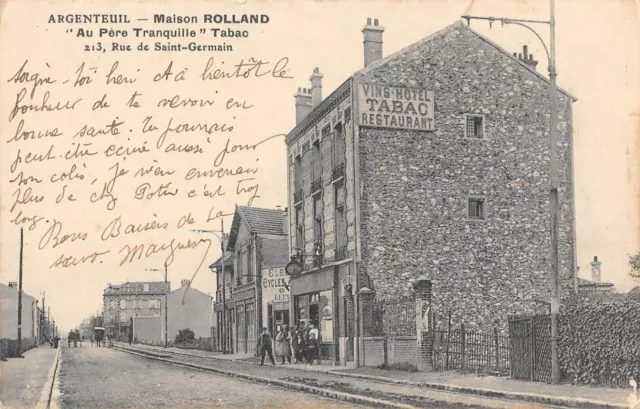 ARGENTEUIL — Maison ROLLAND
"Au Père Tranquille" Tabac
213, Rue de Saint-Germain
soigne-toi bien et à bientôt le
bonheur de te revoir en
bonne santé. Tu pourrais
peut-être écrire aussi pour
ton colis, je n'en enverrais
plus de chez Potin c'est trop
long.
Bons Baisers de ta
sœur.
VINS-HOTEL
TABAC
RESTAURANT
CYCLES